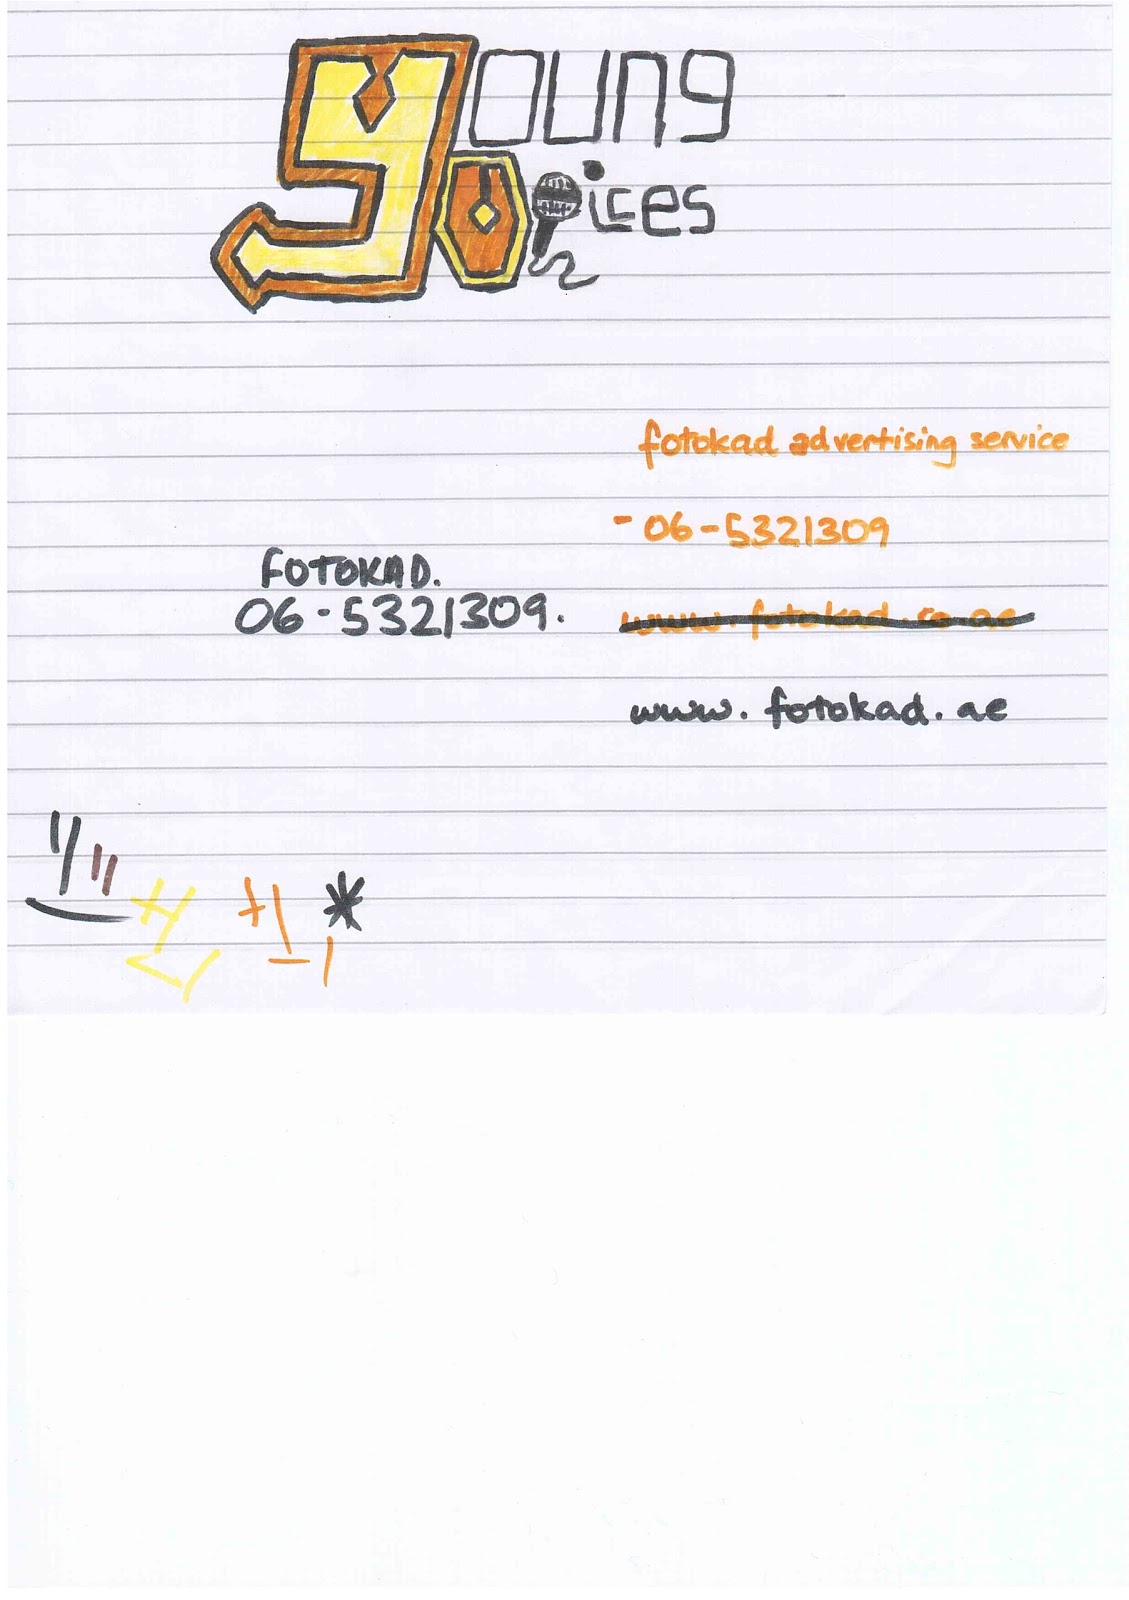 young
voices
fotokad advertising service
- 06-5321309
FOTOKAD.
06-5321309.
www.fotokad.co.ae
www.fotokad.ae